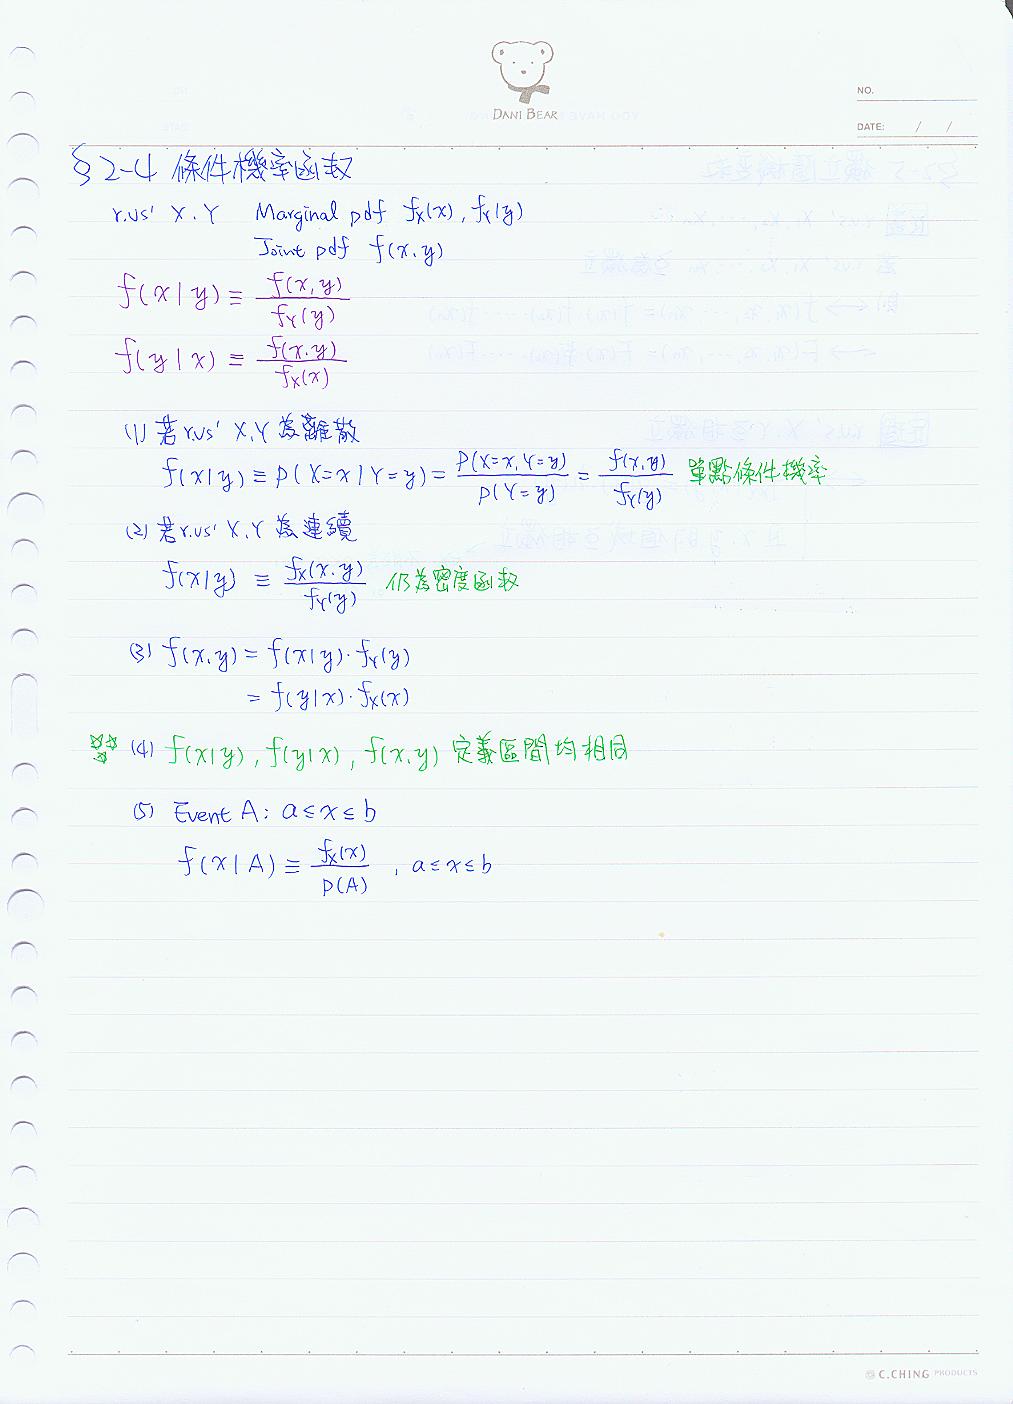 DANI BEAR
NO.
DATE: / /
§2-4 條件機率函数
r.vs' X.Y Marginal pdf fX(x), fY(y)
Joint pdf f(x.y)
f(x|y) ≡ f(x,y) / fY(y)
f(y|x) ≡ f(x.y) / fX(x)
(1) 若r.vs' X.Y 為離散
f(x|y) ≡ P(X=x|Y=y) = P(X=x,Y=y) / P(Y=y) = f(x,y) / fY(y) 單點條件機率
(2) 若r.vs' X.Y 為連續
f(x|y) ≡ fX(x.y) / fY(y) 仍為密度函数
(3) f(x.y) = f(x|y)·fY(y)
= f(y|x)·fX(x)
☆☆☆ (4) f(x|y), f(y|x), f(x.y) 定義區間均相同
(5) Event A: a≤x≤b
f(x|A) ≡ fX(x) / P(A) , a≤x≤b
C.CHING PRODUCTS